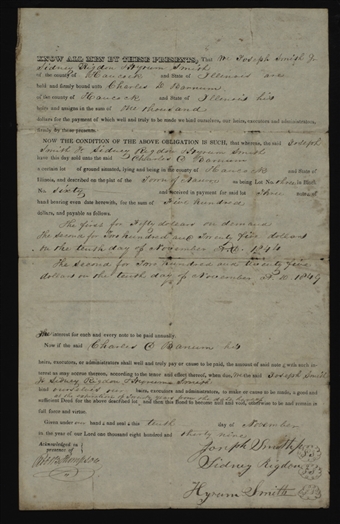 KNOW ALL MEN BY THESE PRESENTS, That We Joseph Smith Jr
Sidney Rigdon & Hyrum Smith
of the county of Hancock and State of Illinois are
held and firmly bound unto Charles C Banum
of the county of Hancock and State of Illinois his
heirs and assigns in the sum of One thousand
dollars for the payment of which well and truly to be made we bind ourselves, our heirs, executors and administrators,
firmly by these presents.
NOW THE CONDITION OF THE ABOVE OBLIGATION IS SUCH, that whereas, the said Joseph
Smith Jr Sidney Rigdon Hyrum Smith
have this day sold unto the said Charles C Banum
a certain lot of ground situated, lying and being in the county of Hancock and State of
Illinois, and described on the plot of the Town of being Lot No. three in Block
No. Sixty and received in payment for said lot Three notes of
hand bearing even date herewith, for the sum of Five hundred
dollars, and payable as follows.
The first for Fifty dollars on demand
The second for Two hundred and Twenty five dollars
on the tenth day of November A.D. 1844
The second for Two hundred and twenty five
dollars on the tenth day of November A.D. 1849
The interest for each and every note to be paid annually.
Now if the said Charles C Banum his
heirs, executors, or administrators shall well and truly pay or cause to be paid, the amount of said notes with such in-
terest as may accrue thereon, according to the tenor and effect thereof, when due, We the said Joseph Smith
Jr Sidney Rigdon & Hyrum Smith
bind ourselves our heirs, executors and administrators, to make or cause to be made, a good and
sufficient Deed for the above described lot at the expiration of twenty years from the date hereof
and then this Bond to become null and void, otherwise to be and remain in
full force and virtue.
Given under our hand s and seal s this tenth day of November
in the year of our Lord one thousand eight hundred and thirty nine
Acknowledged in
presence of
Joseph Smith Jr
Sidney Rigdon
Hyrum Smith